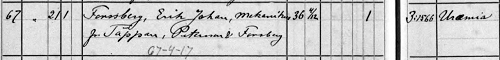 67 " 211 Forssberg, Erik Johan, Mekanikus 36 4/12 1 3:1566 Uræmia
fr. Täppan, Petersvik Forsberg
67-4-17